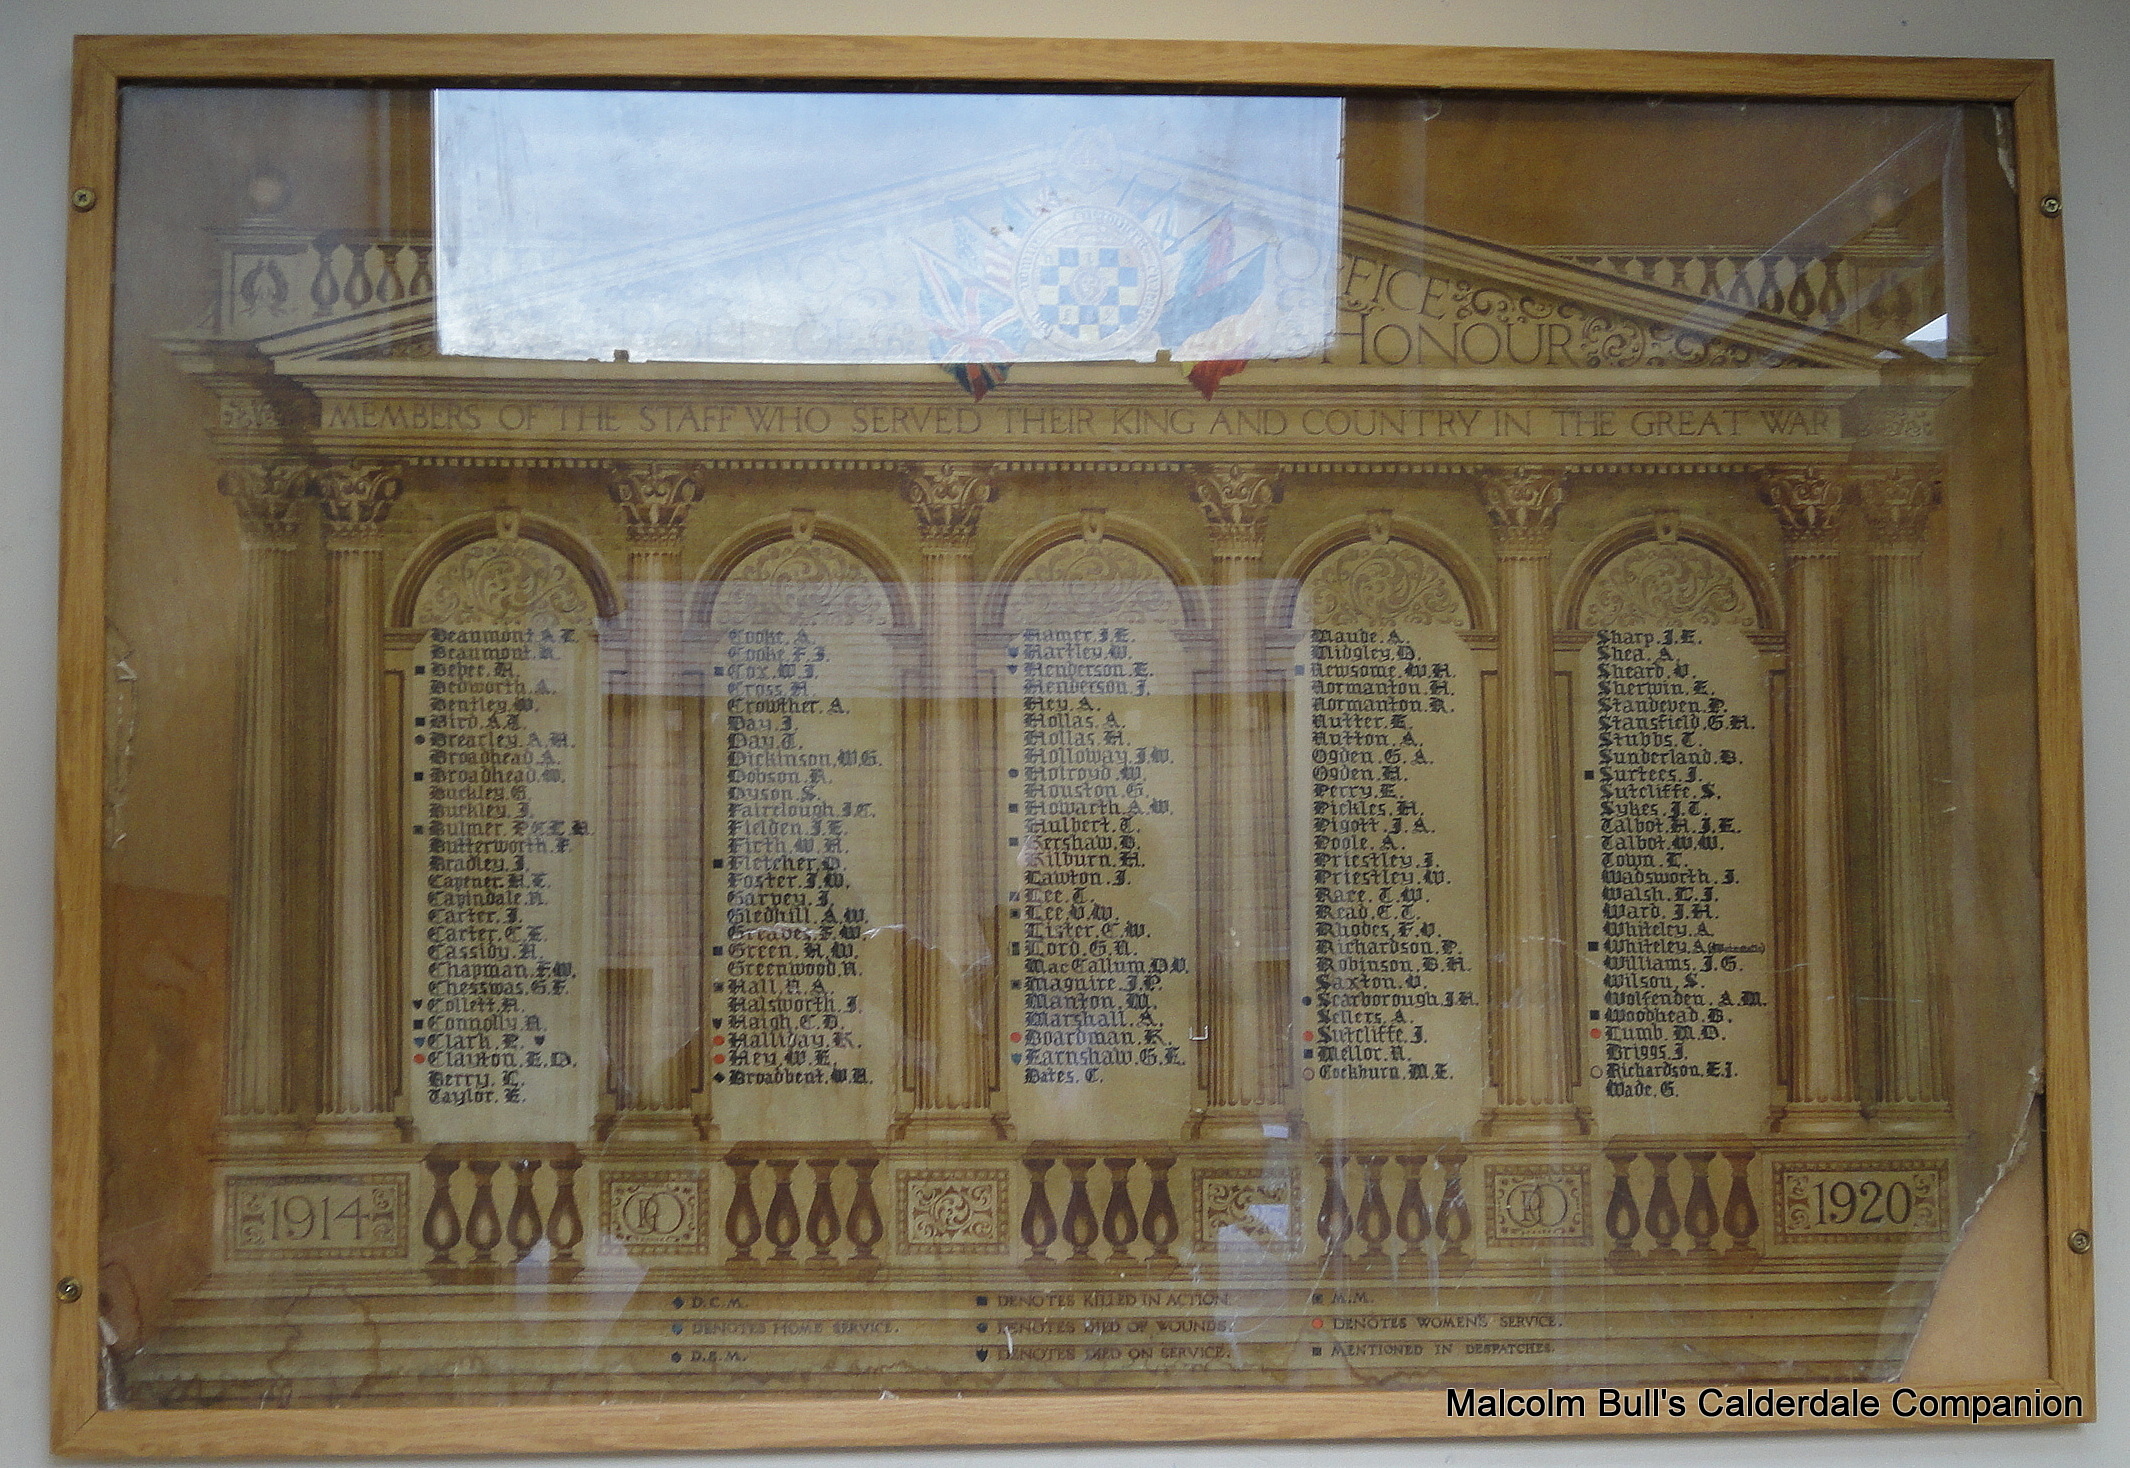 OFFICE
HONOUR
MEMBERS OF THE STAFF WHO SERVED THEIR KING AND COUNTRY IN THE GREAT WAR
Beaumont. A.E.
Beaumont. R.
Beber. H.
Bedworth. A.
Bentley. W.
Bird. A.T.
Brearley. A.H.
Broadhead. A.
Broadhead. W.
Buckley. G.
Buckley. J.
Bulmer.
Butterworth. F.
Bradley. J.
Capener. H.E.
Capindale. N.
Carter. J.
Carter. C.E.
Cassidy. H.
Chapman. F.W.
Chesswas. G.F.
Collett. H.
Connolly. N.
Clark. P.
Clayton. E.D.
Berry. L.
Taylor. E.
Cooke. A.
Cooke. F.J.
Cox. W.J.
Cross. H.
Crowther. A.
Day. J.
Day. T.
Dickinson. W.G.
Dobson. R.
Dyson. S.
Fairclough. J.C.
Fielden. J.E.
Firth. W.H.
Fletcher. D.
Foster. J.W.
Garvey. J.
Gledhill. A.W.
Greaves. F.W.
Green. H.W.
Greenwood. N.
Hall. N.A.
Halsworth. J.
Haigh. C.D.
Halliday. K.
Hey. W.E.
Broadbent. W.H.
Hamer. J.E.
Hartley. W.
Henderson. E.
Henderson. J.
Hey. A.
Hollas. A.
Hollas. H.
Holloway. J.W.
Holroyd. W.
Houston. G.
Howarth. A.W.
Hulbert. T.
Kershaw. B.
Kilburn. H.
Lawton. J.
Lee. T.
Lee. V.W.
Lister. C.W.
Lord. G.N.
MacCallum. D.V.
Maguire. J.P.
Manton. W.
Marshall. A.
Boardman. K.
Earnshaw. G.E.
Bates. C.
Maude. A.
Midgley. D.
Newsome. W.H.
Normanton. H.
Normanton. R.
Nutter. E.
Nutton. A.
Ogden. G.A.
Ogden. H.
Perry. E.
Pickles. H.
Pigott. J.A.
Poole. A.
Priestley. J.
Priestley. W.
Race. T.W.
Read. C.T.
Rhodes. F.V.
Richardson. P.
Robinson. B.H.
Saxton. V.
Scarborough. J.H.
Sellers. A.
Sutcliffe. J.
Mellor. N.
Cockburn. M.E.
Sharp. J.E.
Shea. A.
Sheard. V.
Sherwin. E.
Standeven. P.
Stansfield. G.H.
Stubbs. T.
Sunderland. B.
Surtees. J.
Sutcliffe. S.
Sykes. J.T.
Talbot. H.J.E.
Talbot. W.W.
Town. L.
Wadsworth. J.
Walsh. L.J.
Ward. J.H.
Whiteley. A.
Whiteley. A
Williams. J.G.
Wilson. S.
Wolfenden. A.M.
Woodhead. B.
Lumb. M.D.
Briggs. J.
Richardson. E.J.
Wade. G.
1914
PO
PO
1920
D.C.M.
DENOTES HOME SERVICE.
D.S.M.
DENOTES KILLED IN ACTION.
DENOTES DIED OF WOUNDS.
DENOTES DIED ON SERVICE.
M.M.
DENOTES WOMEN'S SERVICE.
MENTIONED IN DESPATCHES.
Malcolm Bull's Calderdale Companion